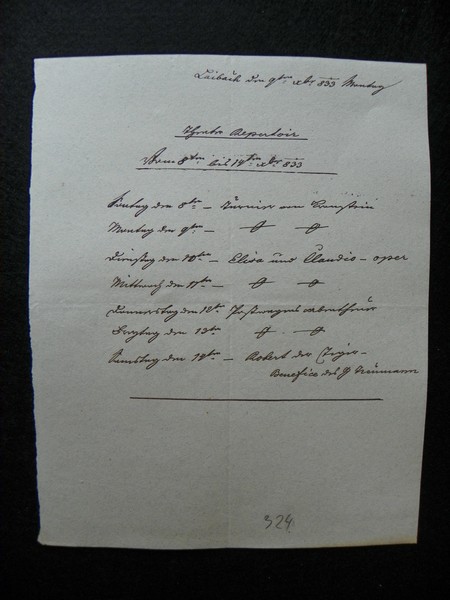 Laibach den 9ten xbr 833 Montag
Theater Repertoir
Vom 8ten bis 14ten xbr 833
Sontag den 8ten – Turnier von Cronstein
Montag den 9ten –
Dienstag den 10ten – Elisa und Claudio – oper
Mittwoch den 11ten –
Donnerstag den 12ten Postwagens abentheuer
Freytag den 13ten
Samstag den 14ten – Robert der Tieger –
Benefice des H Neümann
324